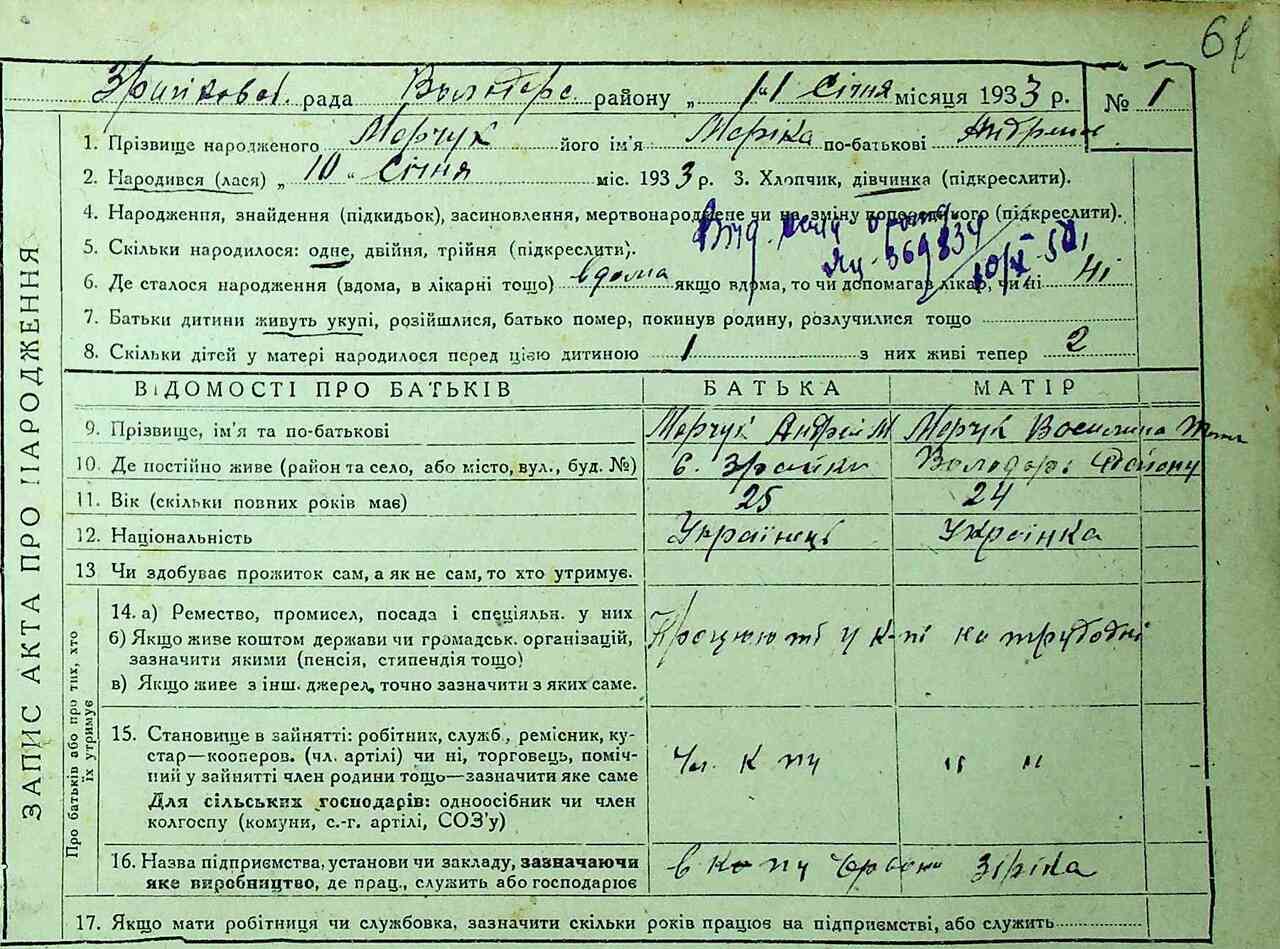 61
Зрайковсь. рада Володарс. району „ 11 " Січня місяця 1933 р. № 1
ЗАПИС АКТА ПРО НАРОДЖЕННЯ
1. Прізвище народженого Марчук його ім'я Маріка по-батькові Андріївн
2. Народився (лася) „ 10 " Січня міс. 1933 р. 3. Хлопчик, дівчинка (підкреслити).
4. Народження, знайдення (підкидьок), засиновлення, мертвонароджене чи на зміну попереднього (підкреслити).
5. Скільки народилося: одне, двійня, трійня (підкреслити).
369834
6. Де сталося народження (вдома, в лікарні тощо) вдома якщо вдома, то чи допомагав лікар, чи ні ні
7. Батьки дитини живуть укупі, розійшлися, батько помер, покинув родину, розлучилися тощо
8. Скільки дітей у матері народилося перед цією дитиною 1 з них живі тепер 2
ВІДОМОСТІ ПРО БАТЬКІВ БАТЬКА МАТІР
9. Прізвище, ім'я та по-батькові Марчук Андрей М Марчук Василина
10. Де постійно живе (район та село, або місто, вул., буд. №) с. Зрайки Володарс Району
11. Вік (скільки повних років має) 25 24
12. Національність Українець Українка
13 Чи здобуває прожиток сам, а як не сам, то хто утримує.
Про батьків або про тих, хто
їх утримує
14. а) Ремество, промисел, посада і спеціяльн. у них
б) Якщо живе коштом держави чи громадськ. організацій,
зазначити якими (пенсія, стипендія тощо)
в) Якщо живе з інш. джерел, точно зазначити з яких саме.
Працюють у к-пі на трудодні
15. Становище в зайнятті: робітник, служб., ремісник, ку-
стар—кооперов. (чл. артілі) чи ні, торговець, поміч-
ний у зайнятті член родини тощо—зазначити яке саме
Для сільських господарів: одноосібник чи член
колгоспу (комуни, с.-г. артілі, СОЗ'у)
Чл. к пу " "
16. Назва підприємства, установи чи закладу, зазначаючи
яке виробництво, де прац., служить або господарює
в к пу Зірка
17. Якщо мати робітниця чи службовка, зазначити скільки років працює на підприємстві, або служить